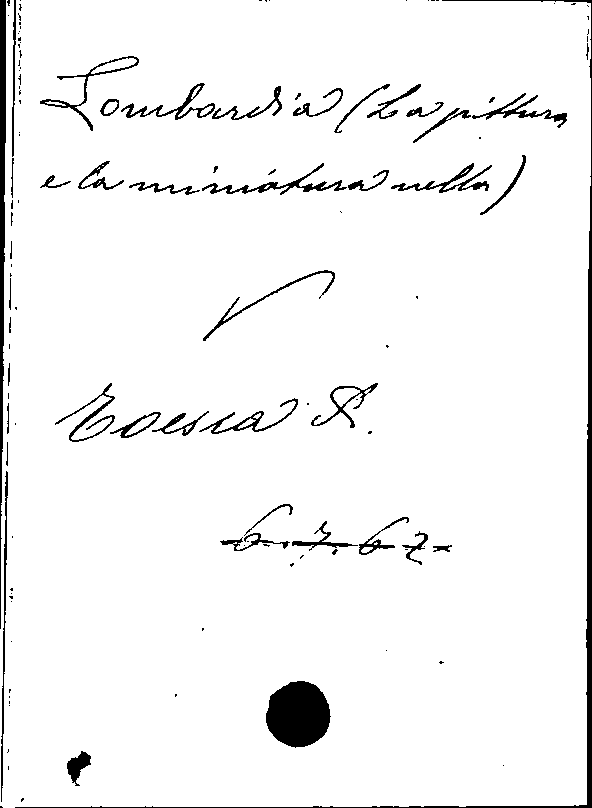 Lombardia (La pittura
e la miniatura nella)
V
Toesca P.
6.7.6 2